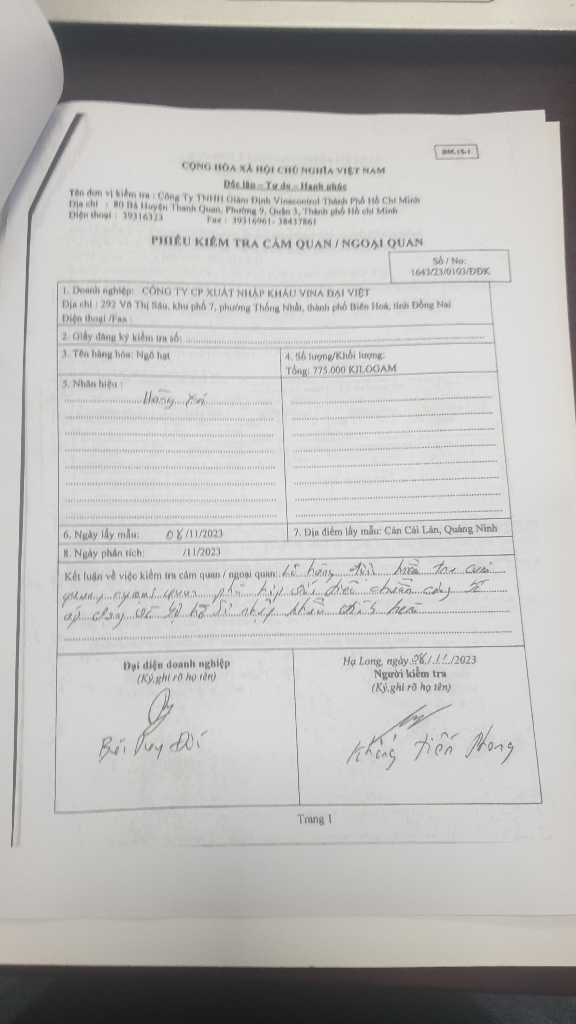 BM.15-1
CỘNG HÒA XÃ HỘI CHỦ NGHĨA VIỆT NAM
Độc lập – Tự do – Hạnh phúc
Tên đơn vị kiểm tra : Công Ty TNHH Giám Định Vinacontrol Thành Phố Hồ Chí Minh
Địa chỉ : 80 Bà Huyện Thanh Quan, Phường 9, Quận 3, Thành phố Hồ chí Minh
Điện thoại : 39316323 Fax : 39316961- 38437861
PHIẾU KIỂM TRA CẢM QUAN / NGOẠI QUAN
Số / No:
1643/23/0103/ĐĐK
1. Doanh nghiệp: CÔNG TY CP XUẤT NHẬP KHẨU VINA ĐẠI VIỆT
Địa chỉ : 292 Võ Thị Sáu, khu phố 7, phường Thống Nhất, thành phố Biên Hoà, tỉnh Đồng Nai
Điện thoại /Fax :
2. Giấy đăng ký kiểm tra số:
3. Tên hàng hóa: Ngô hạt
4. Số lượng/Khối lượng:
Tổng: 775.000 KILOGAM
5. Nhãn hiệu :
Hàng xá
6. Ngày lấy mẫu: 08/11/2023
7. Địa điểm lấy mẫu: Cảng Cái Lân, Quảng Ninh
8. Ngày phân tích: /11/2023
Kết luận về việc kiểm tra cảm quan / ngoại quan: Lô hàng kiểm tra cảm
quan, ngoại quan phù hợp với tiêu chuẩn công bố
áp dụng và hồ sơ nhập khẩu
Đại diện doanh nghiệp
(Ký,ghi rõ họ tên)
Bùi Duy
Hạ Long, ngày 08/11/2023
Người kiểm tra
(Ký,ghi rõ họ tên)
Tiến Phong
Trang 1